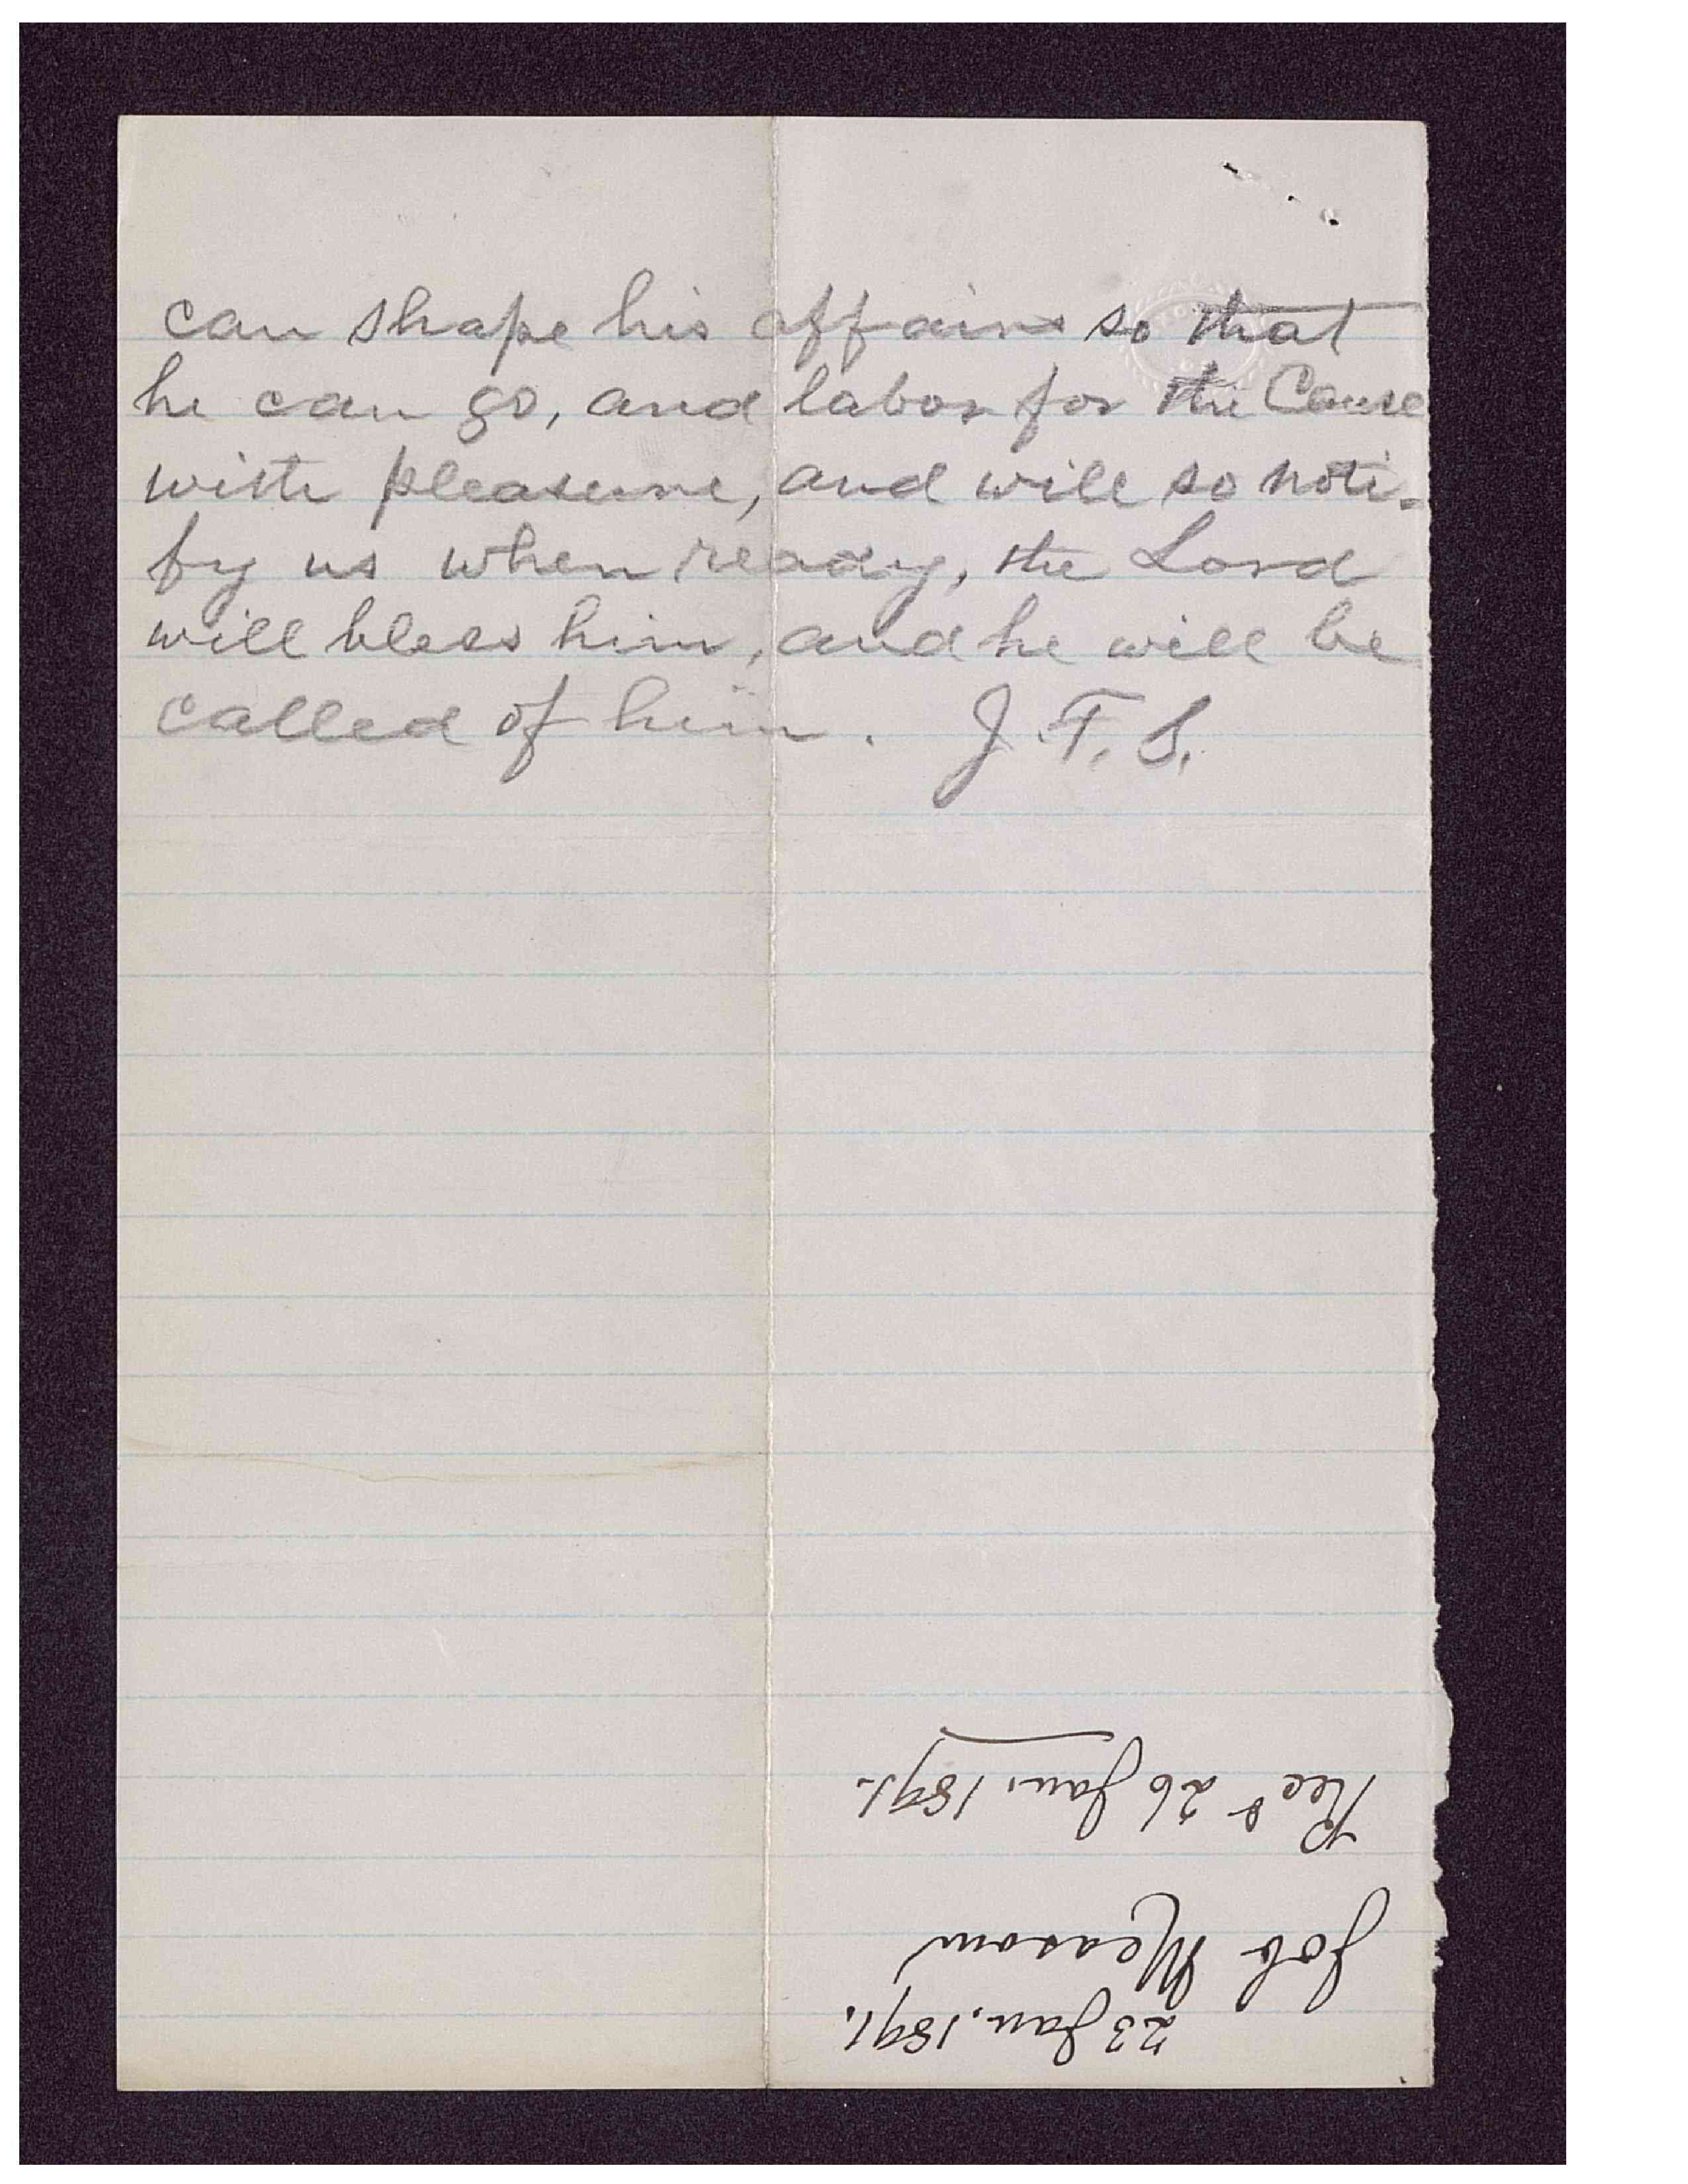 can shape his affairs so that
he can go, and labor for the Cause
with pleasure, and will so noti-
fy us when ready, the Lord
will bless him, and he will be
called of him. J. F. S.
23 Jan. 1891.
Job Measom
Recd 26 Jan. 1891.